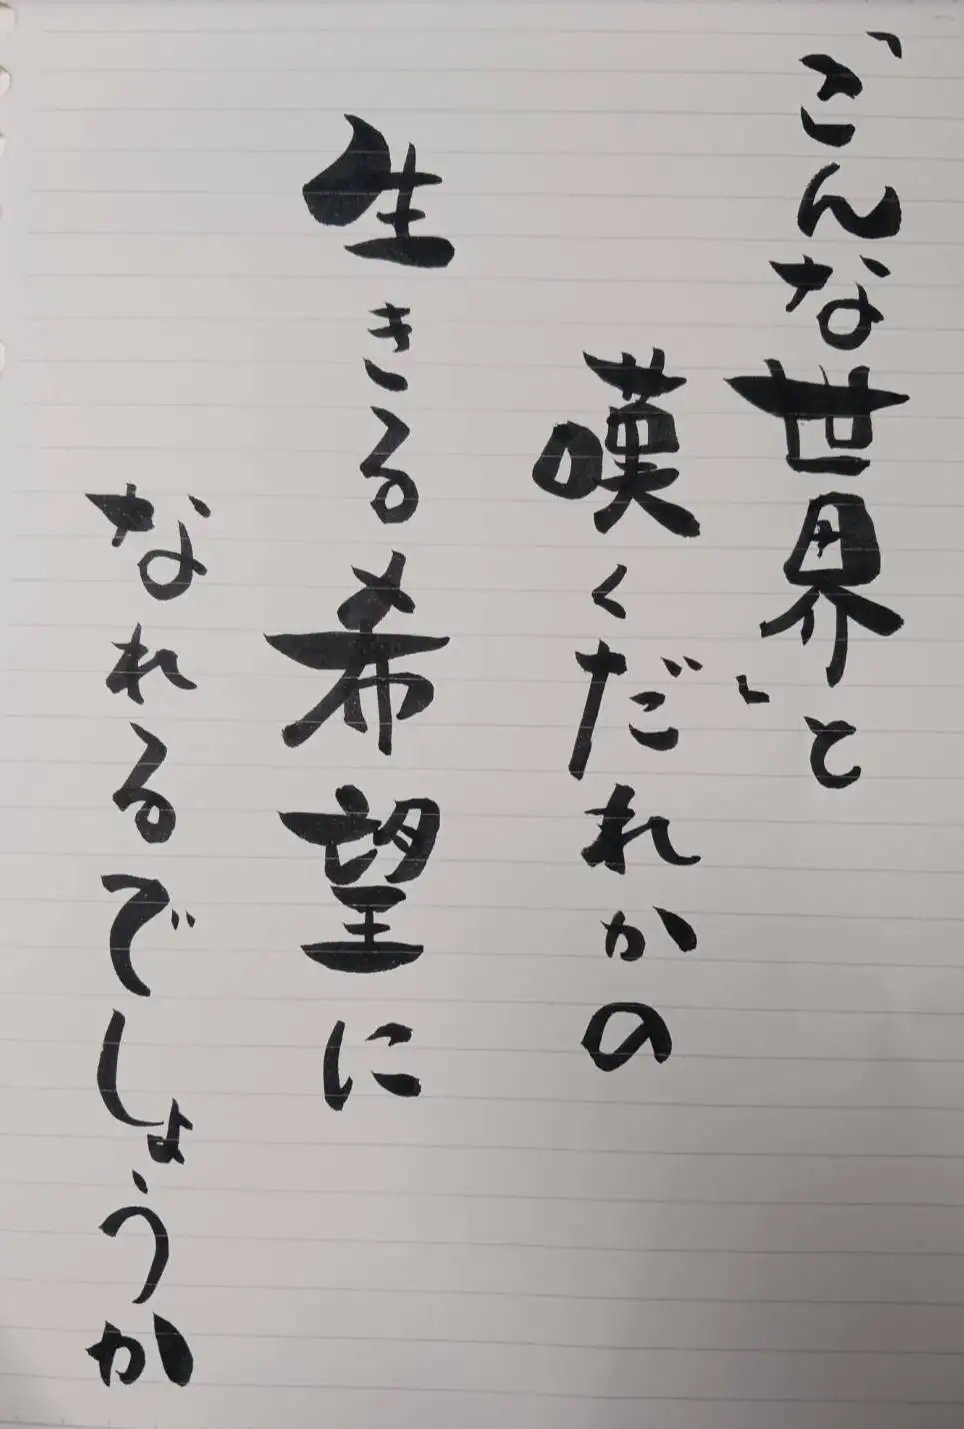 「こんな世界」と
嘆くだれかの
生きる希望に
なれるでしょうか